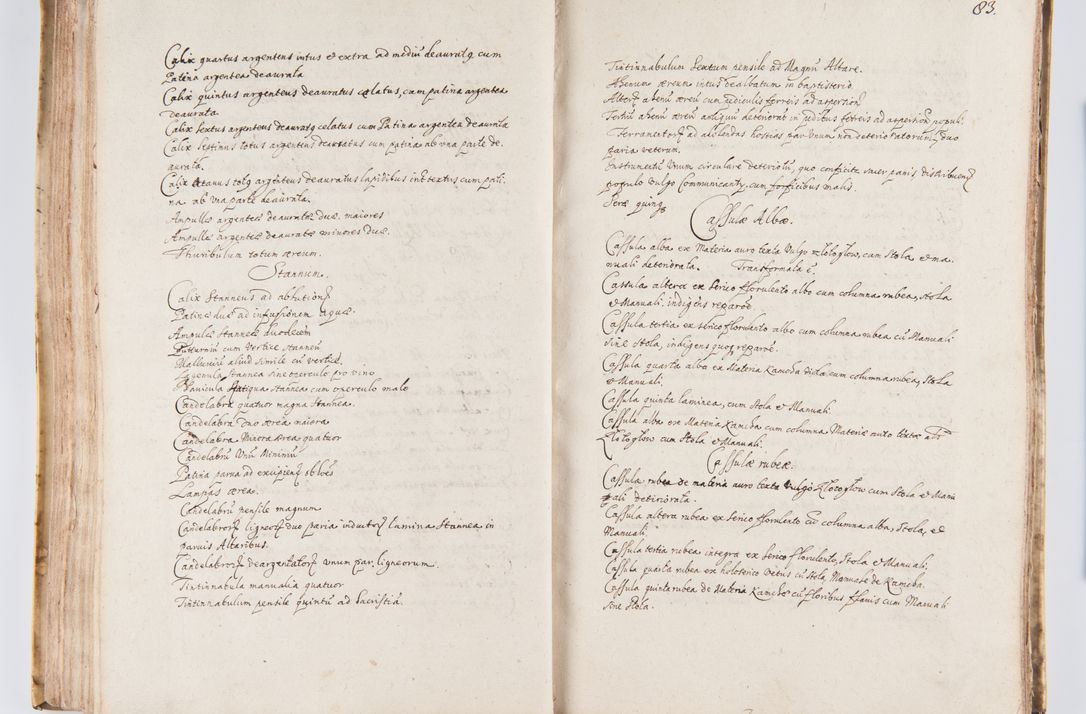 Calix quartus argenteus intus et extra ad mediũ deauratq cum
Patina argentea deaurata
Calix quintus argenteus deauratus celatus, cum patina argentea
deaurata.
Calix sextus argenteus deauratq celatus cum Patina argentea deaurata
Calix septimus totus argenteus deauratus cum patina ab vna parte de,,
aurata.
Calix octauus totq argenteus deauratus lapidibus intertextus cum pati,,
na ab vna parte deaurata.
Ampullæ argenteæ deauratæ duæ. maiores
Ampullæ argenteæ deauratæ minores duæ.
Thuribulum totum æreum.
Stannum.
Calix Stanneus ad ablutionẽ
Patinæ duæ ad infusionem aquæ.
Ampulæ Stanneæ duodecim
cum vertice stanneũ
Malluuiũ aliud simile cũ vertice.
Lagenula stannea sine operculo pro vino
Nauicula Antiqua Stannea cum operculo malo
Candelabra quatuor magna Stannea.
Candelabra duo ærea maiora
Candelabra Minora ærea quatuor
Candelabrũ Vnũ Minimũ
Patina parua ad
Lampas ærea.
Candelabrũ pensile magnum
Candelabrorũ ligneorũ duo paria lamina Stannea in
paruis Altaribus.
Candelabrorũ deargentatorũ vnum par ligneorum.
Tintinnabula manualia quatuor
Tintinnabulum pensile quintũ ad Sacristiã.
83.
Tintinnabulum Sextum pensile ad Magnũ Altare.
Ahenum æreum intus dealbatum in baptisterio.
Alterũ ahenũ æreũ cum ferreis ad aspersionẽ
Tertiũ ahenũ æreũ antiquũ ferreis ad aspersionẽ populi.
Ferramentorũ ad hostias par vnum non deterioratorum, duo
paria veterum.
Instrumentũ vnum circulare deteriorũ, quo panis
populo vulgo cum forficibus malis.
Seræ quinq
Casulæ Albæ.
Cassula alba ex Materia auro texta vulgo Złotogłow, cum Stola et ma,,
nuali deteriorata. Transformata ẽ.
Cassula altera ex Serico florulento albo cum columna rubea, Stola
et Manuali. indigens
Cassula tertia ex serico florulento albo cum columna rubea cũ Manuali
sine Stola, indigens
Cassula quarta alba ex Materia Kamcha dicta cum columna rubea, Stola
et Manuali.
Cassula quinta laminea, cum Stola et Manuali
Cassula alba ex Materia Kamcha cum columna Materiæ auro textæ
Złotogłow cum Stola et Manuali.
Cassulæ rubeæ.
Cassula rubea de materia auro texta vulgo Złotogłow cum Stola et Manu
ali deteriorata.
Cassula altera rubea ex Serico florulento cũ columna alba, Stola, et
Manuali.
Cassula tertia rubea integra ex Serico florulento, Stola et Manuali.
Cassula quarta rubea ex holoserico vetus cũ Stola, Manuale de Kamcha.
Cassula quinta rubea de Materia Kamchæ cũ floribus flauis cum Manuali
sine Stola.